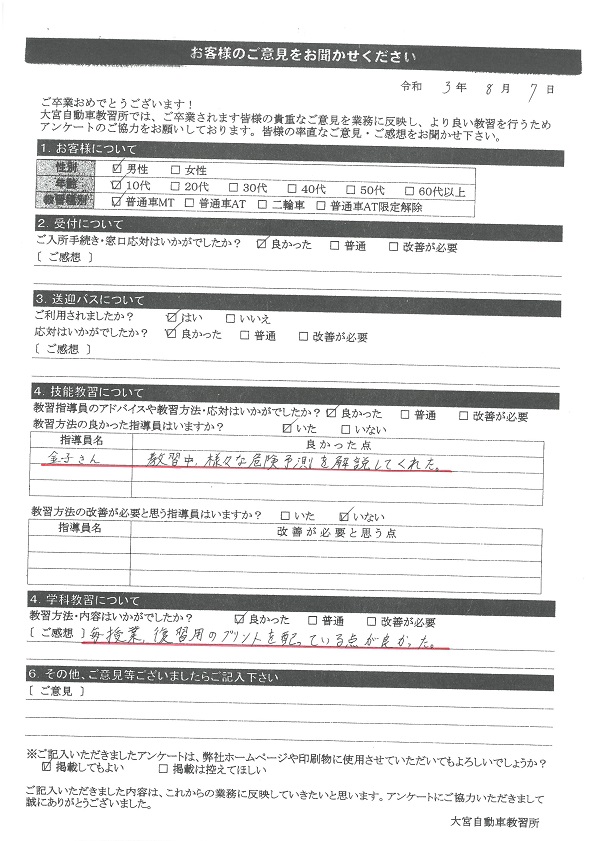 お客様のご意見をお聞かせください
令和 3年 8月 7日
ご卒業おめでとうございます！
大宮自動車教習所では、ご卒業されます皆様の貴重なご意見を業務に反映し、より良い教習を行うため
アンケートのご協力をお願いしております。皆様の率直なご意見・ご感想をお聞かせ下さい。
1. お客様について
性別 ☑ 男性 □ 女性
年齢 ☑ 10代 □ 20代 □ 30代 □ 40代 □ 50代 □ 60代以上
教習種別 ☑ 普通車MT □ 普通車AT □ 二輪車 □ 普通車AT限定解除
2. 受付について
ご入所手続き・窓口応対はいかがでしたか？ ☑ 良かった □ 普通 □ 改善が必要
[ ご感想 ]
3. 送迎バスについて
ご利用されましたか？ ☑ はい □ いいえ
応対はいかがでしたか？ ☑ 良かった □ 普通 □ 改善が必要
[ ご感想 ]
4. 技能教習について
教習指導員のアドバイスや教習方法・応対はいかがでしたか？ ☑ 良かった □ 普通 □ 改善が必要
教習方法の良かった指導員はいますか？ ☑ いた □ いない
指導員名 良かった点
金子さん 教習中、様々な危険予測を解説してくれた。
教習方法の改善が必要と思う指導員はいますか？ □ いた ☑ いない
指導員名 改善が必要と思う点
4. 学科教習について
教習方法・内容はいかがでしたか？ ☑ 良かった □ 普通 □ 改善が必要
[ ご感想 ] 毎授業、復習用のプリントを配っている点が良かった。
6. その他、ご意見等ございましたらご記入下さい
[ ご意見 ]
※ご記入いただきましたアンケートは、弊社ホームページや印刷物に使用させていただいてもよろしいでしょうか？
☑ 掲載してもよい □ 掲載は控えてほしい
ご記入いただきました内容は、これからの業務に反映していきたいと思います。アンケートにご協力いただきまして
誠にありがとうございました。
大宮自動車教習所